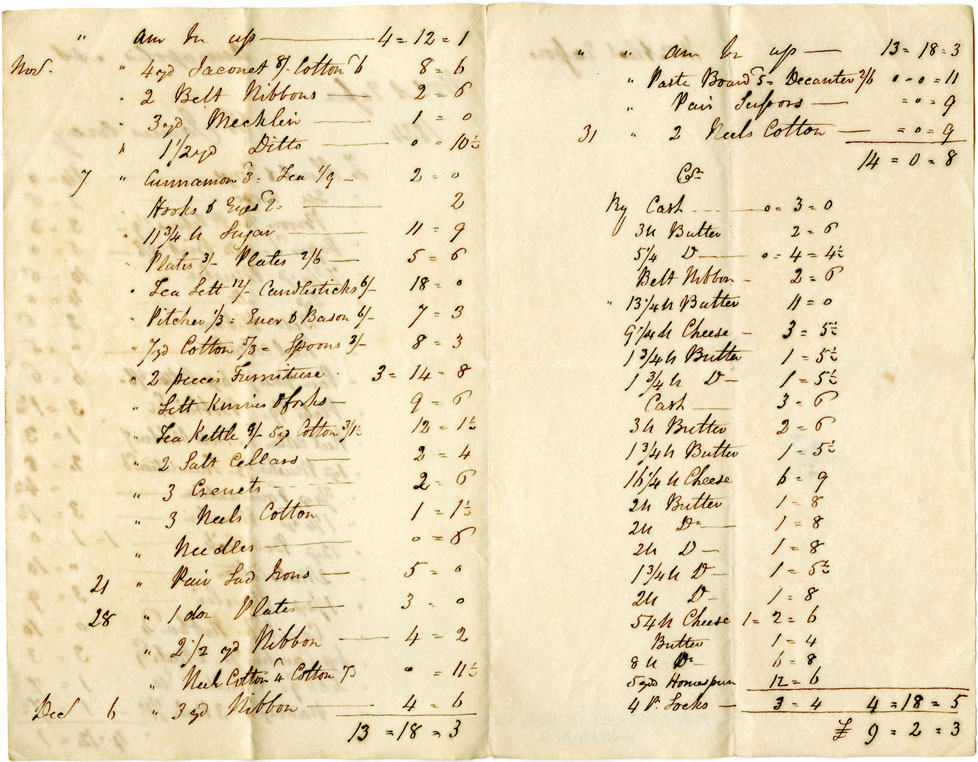 " Am Br up — 4 = 12 = 1
Nov. " 4 yd Jaconet 8/- Cotton 6 8 = 6
" 2 Belt Ribbons — 2 = 6
" 3 yd Mecklin — 1 = 0
" 1 1/2 yd Ditto — 0 = 10½
7 " Cinnamon 3d = Tea 1/9 — 2 = 0
Hooks & Eyes 2d — 2
" 11 3/4 lb Sugar — 11 = 9
" Plates 3/- Plates 2/6 — 5 = 6
" Tea Sett 12/- Candlesticks 6/- 18 = 0
" Pitcher 1/3 = Ewer & Bason 6/- 7 = 3
" 7 yd Cotton 5/3 = Spoons 3/- 8 = 3
" 2 pieces Furniture 3 = 14 = 8
" Sett Knives & forks — 9 = 6
" Tea Kettle 9/- 5 yd Cotton 3/1½ 12 = 1½
" 2 Salt Cellars — 2 = 4
" 3 Crewets — 2 = 6
" 3 Reels Cotton 1 = 1½
" Needles — 0 = 6
21 " Pair Sad Irons — 5 = 0
28 " 1 doz Plates — 3 = 0
" 2 1/2 yd Ribbon — 4 = 2
" Reel Cotton 4 Cotton 7½ 0 = 11½
Decr 6 " 3 yd Ribbon — 4 = 6
13 = 18 = 3
" " Am Br up — 13 = 18 = 3
" Paste Board 5d = Decanter 2/6 0 - 0 = 11
" Pair — = 0 = 9
31 " 2 Reels Cotton — = 0 = 9
14 = 0 = 8
Cr
By Cash — 0 = 3 = 0
3 lb Butter 2 = 6
5 1/4 Do — 0 = 4 = 4½
Belt Ribbon - 2 = 6
" 13 1/4 lb Butter 11 = 0
9 1/4 lb Cheese - 3 = 5½
1 3/4 lb Butter 1 = 5½
1 3/4 lb Do — 1 = 5½
Cash — 3 = 6
3 lb Butter 2 = 6
1 3/4 lb Butter 1 = 5½
16 1/4 lb Cheese 6 = 9
2 lb Butter 1 = 8
2 lb Do — 1 = 8
2 lb Do — 1 = 8
1 3/4 lb Do - 1 = 5½
2 lb Do — 1 = 8
54 lb Cheese 1 = 2 = 6
Butter 1 = 4
8 lb Do - 6 = 8
5 yd Homespun 12 = 6
4 Pr Socks — 3 = 4 4 = 18 = 5
£ 9 = 2 = 3